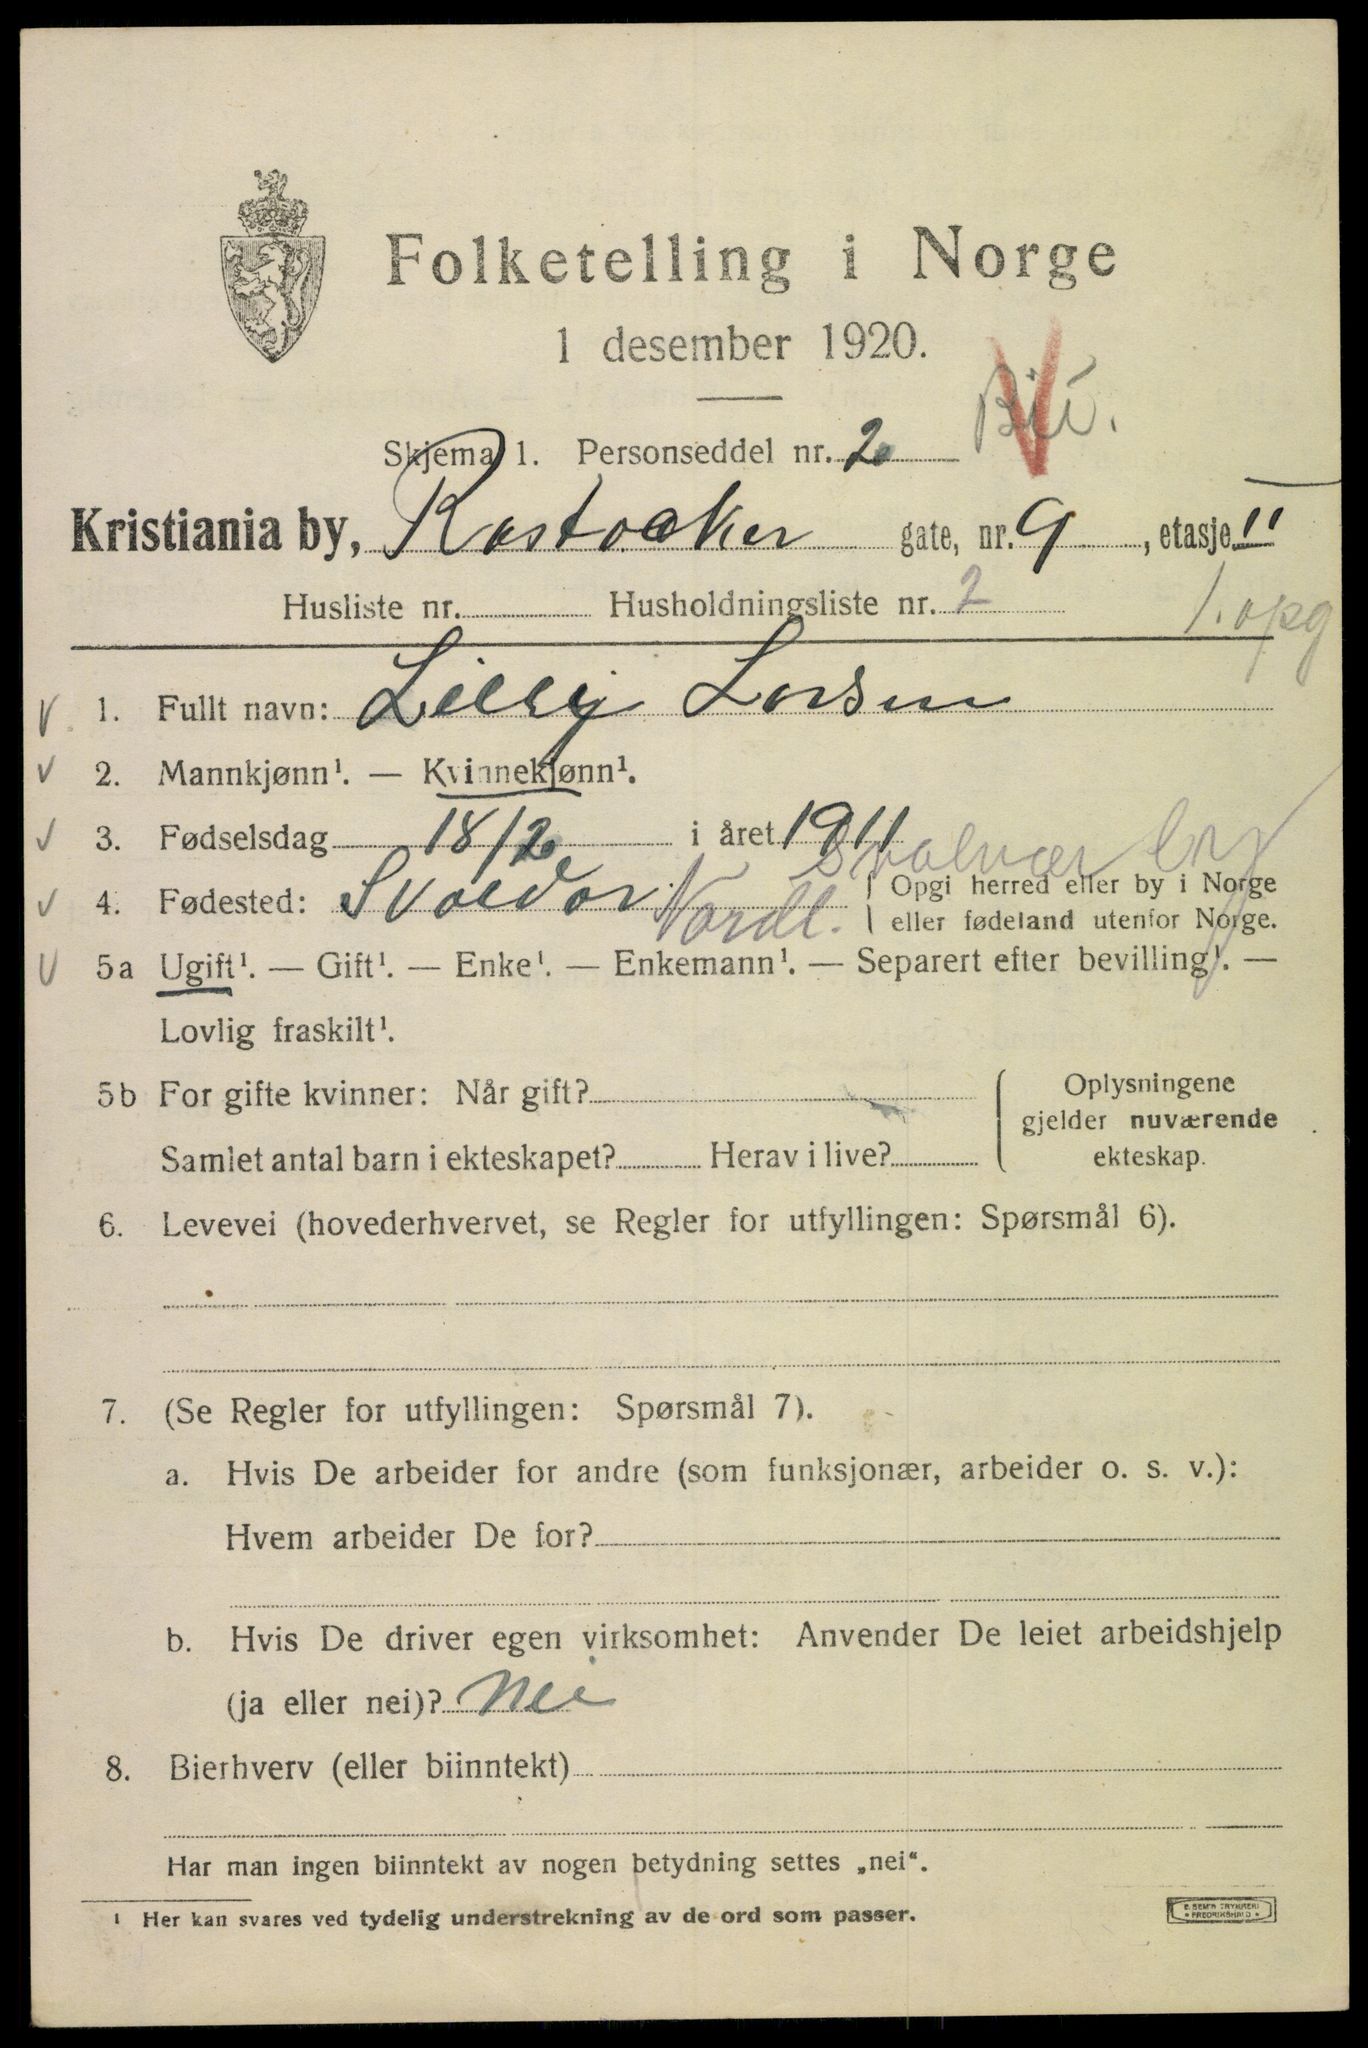 Folketelling i Norge
1 desember 1920.
Skjema 1. Personseddel nr. 2
Kristiania by, Rostocker gate, nr. 9, etasje II
Husliste nr. Husholdningsliste nr. 2
1. opg
1. Fullt navn: Lilly Larsen
2. Mannkjønn¹. — Kvinnekjønn¹.
3. Fødselsdag 18/2 i året 1911
Svolvær by
4. Fødested: Nordl. Opgi herred eller by i Norge
eller fødeland utenfor Norge.
5a Ugift¹. — Gift¹. — Enke¹. — Enkemann¹. — Separert efter bevilling¹. —
Lovlig fraskilt¹.
5b For gifte kvinner: Når gift?
Samlet antal barn i ekteskapet? Herav i live?
Oplysningene
gjelder nuværende
ekteskap.
6. Levevei (hovederhvervet, se Regler for utfyllingen: Spørsmål 6).
7. (Se Regler for utfyllingen: Spørsmål 7).
a. Hvis De arbeider for andre (som funksjonær, arbeider o. s. v.):
Hvem arbeider De for?
b. Hvis De driver egen virksomhet: Anvender De leiet arbeidshjelp
(ja eller nei)? Nei
8. Bierhverv (eller biinntekt)
Har man ingen biinntekt av nogen betydning settes „nei“.
¹ Her kan svares ved tydelig understrekning av de ord som passer.